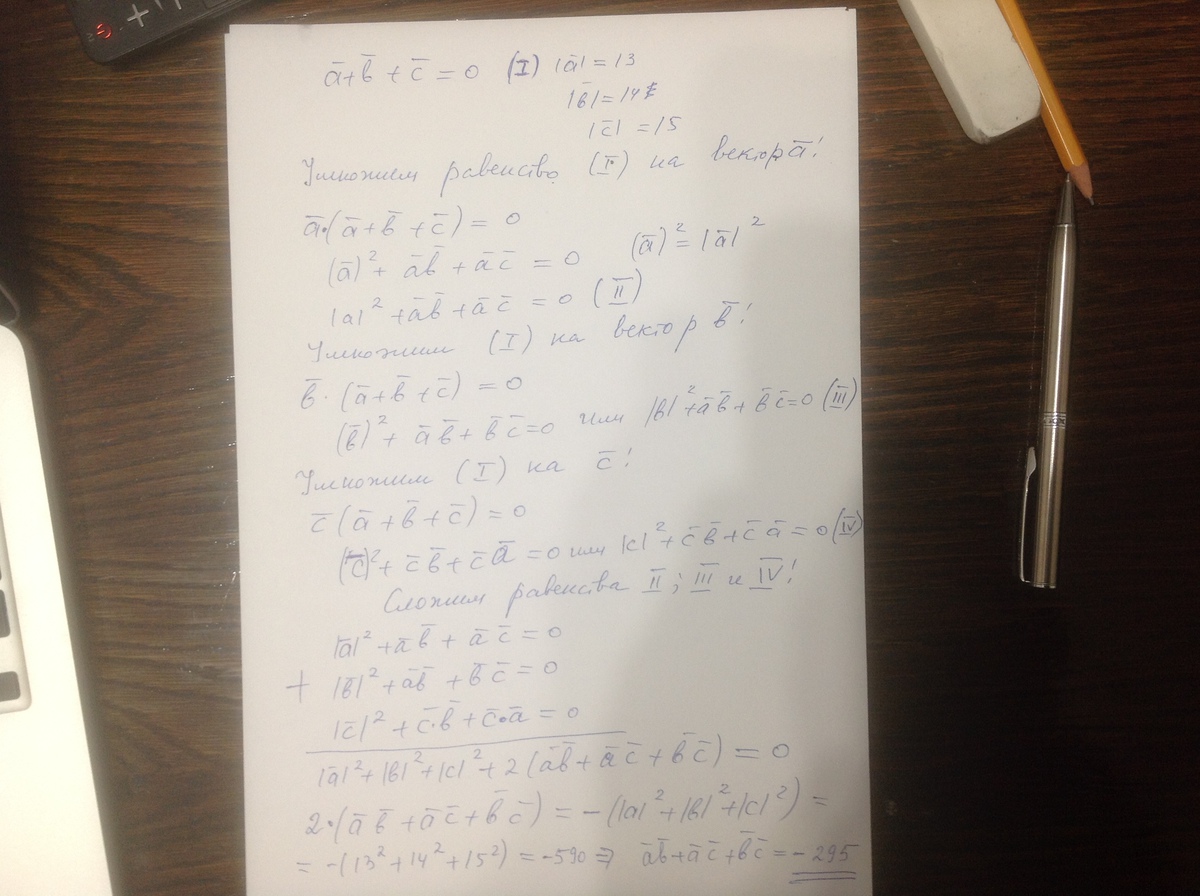 ā+b̄+c̄=0 (I) |ā|=13
|b̄|=14
|c̄|=15
Умножим равенство (I) на вектор ā!
ā·(ā+b̄+c̄)=0
(ā)²+āb̄+āc̄=0 (ā)²=|ā|²
|a|²+āb̄+āc̄=0 (II)
Умножим (I) на вектор b̄!
b̄·(ā+b̄+c̄)=0
(b̄)²+āb̄+b̄c̄=0 или |b|²+āb̄+b̄c̄=0 (III)
Умножим (I) на c̄!
c̄(ā+b̄+c̄)=0
(c̄)²+c̄b̄+c̄ā=0 или |c|²+c̄b̄+c̄ā=0 (IV)
Сложим равенства II; III и IV!
|ā|²+āb̄+āc̄=0
+ |b̄|²+āb̄+b̄c̄=0
|c̄|²+c̄·b̄+c̄·ā=0
|ā|²+|b|²+|c|²+2(āb̄+āc̄+b̄c̄)=0
2·(āb̄+āc̄+b̄c̄)=-(|a|²+|b|²+|c|²)=
=-(13²+14²+15²)=-590 ⇒ āb̄+āc̄+b̄c̄=-295